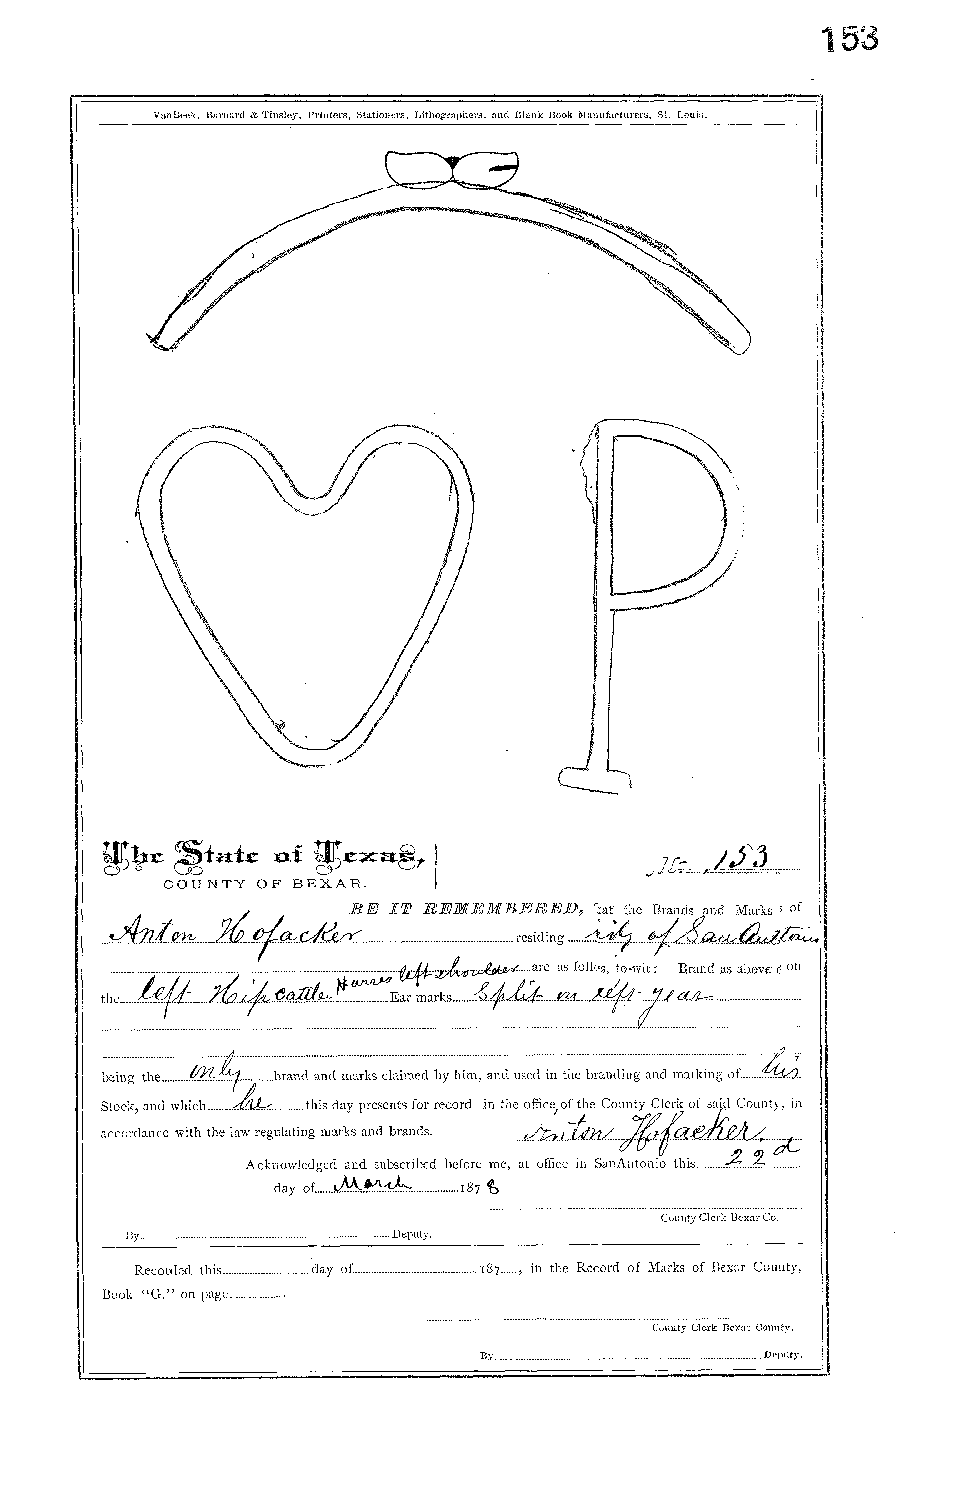 153
VanBeek, Barnard & Tinsley, Printers, Stationers, Lithographers, and Blank Book Manufacturers, St. Louis.
P
The State of Texas,
COUNTY OF BEXAR.
No. 153
BE IT REMEMBERED, that the Brands and Marks of
Anton Hofacker residing city of San Antonio
are as follos, to-wit: Brand as above on
the left Hip cattle Horses left shoulder Ear marks Split in left year
being the only brand and marks claimed by him, and used in the branding and marking of his
Stock, and which he this day presents for record in the office of the County Clerk of said County, in
accordance with the law regulating marks and brands. Anton Hofacker.
Acknowledged and subscribed before me, at office in SanAntonio this 22d
day of March 1878
County Clerk Bexar Co.
By Deputy.
Recorded this day of 187 , in the Record of Marks of Bexar County,
Book "G," on page
County Clerk Bexar County.
By Deputy.